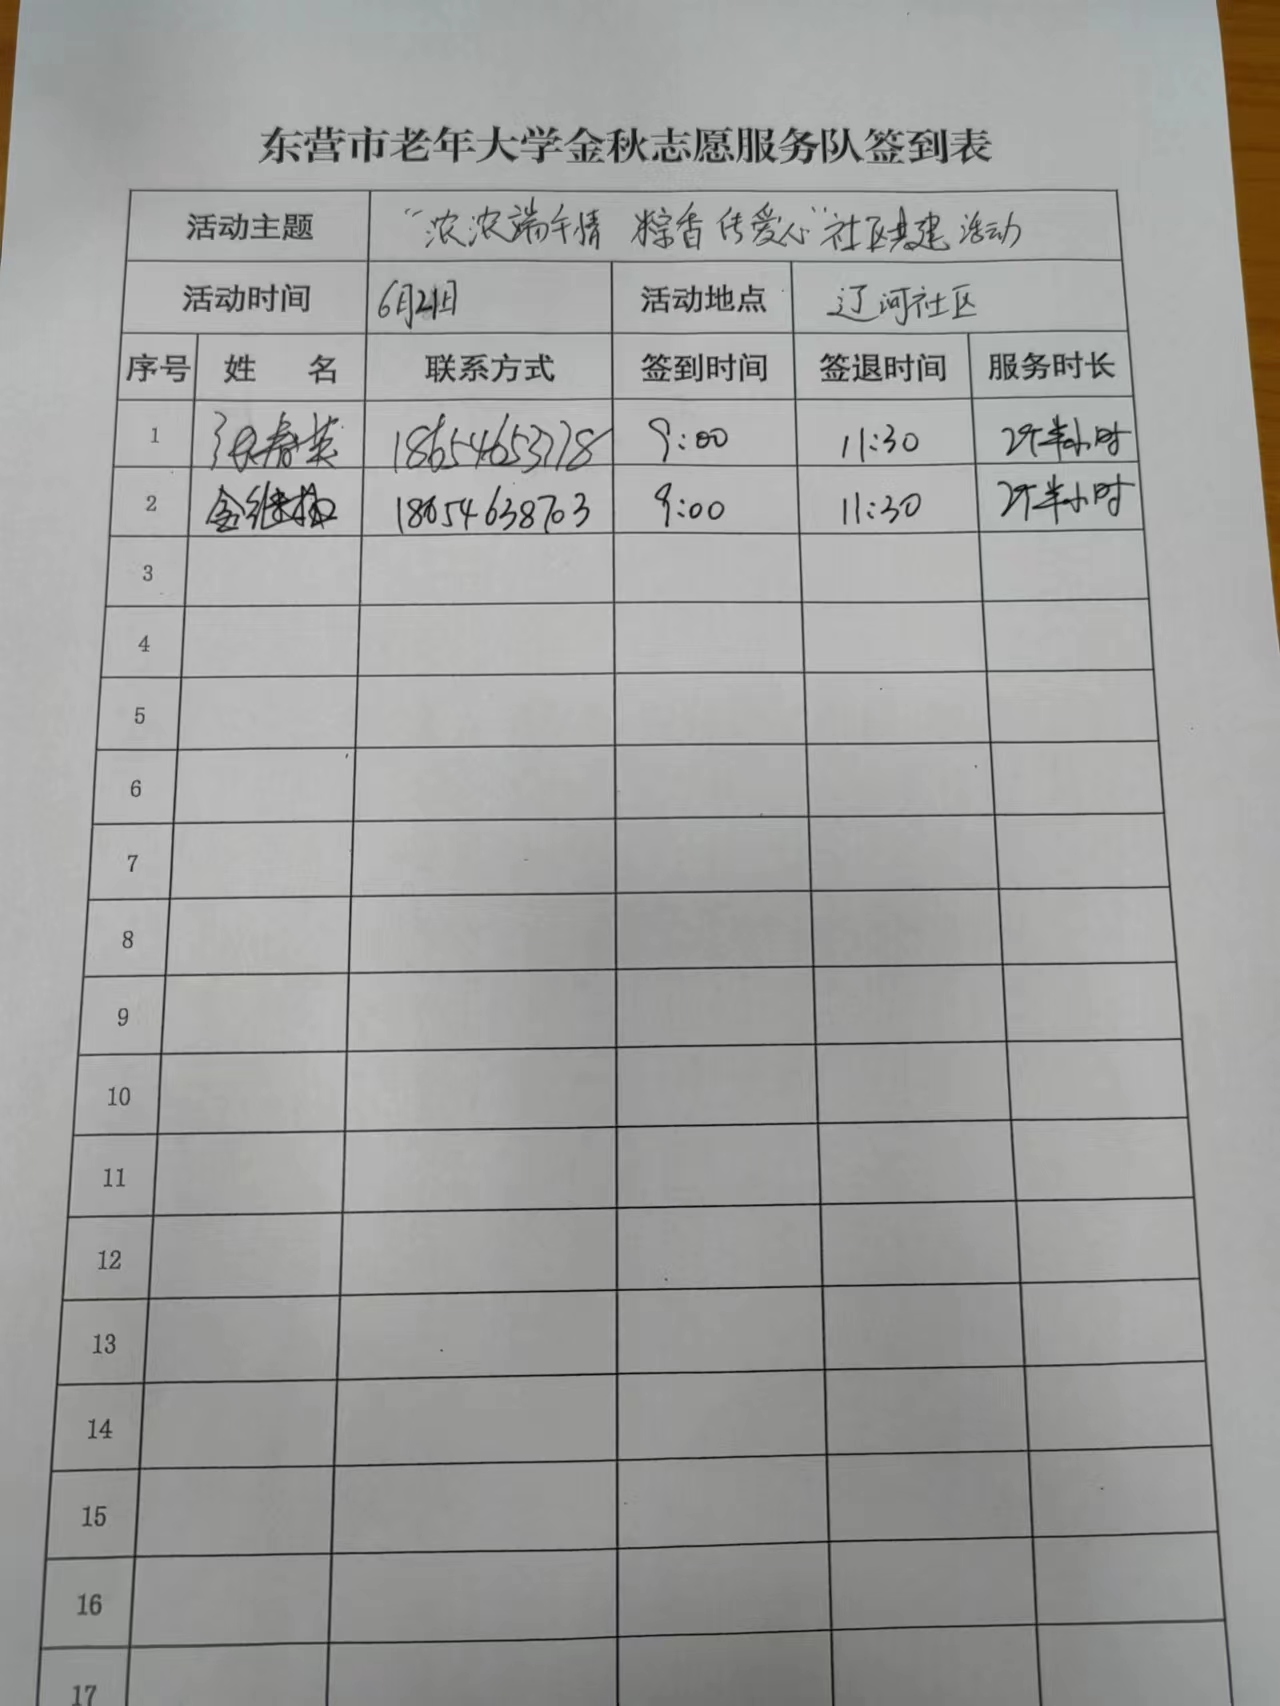 东营市老年大学金秋志愿服务队签到表
活动主题 “浓浓端午情 粽香传爱心”社区共建活动
活动时间 6月21日 活动地点 辽河社区
序号 姓 名 联系方式 签到时间 签退时间 服务时长
1 张春英 18654653778 9:00 11:30 2个半小时
2 18654638703 9:00 11:30 2个半小时
3
4
5
6
7
8
9
10
11
12
13
14
15
16
17